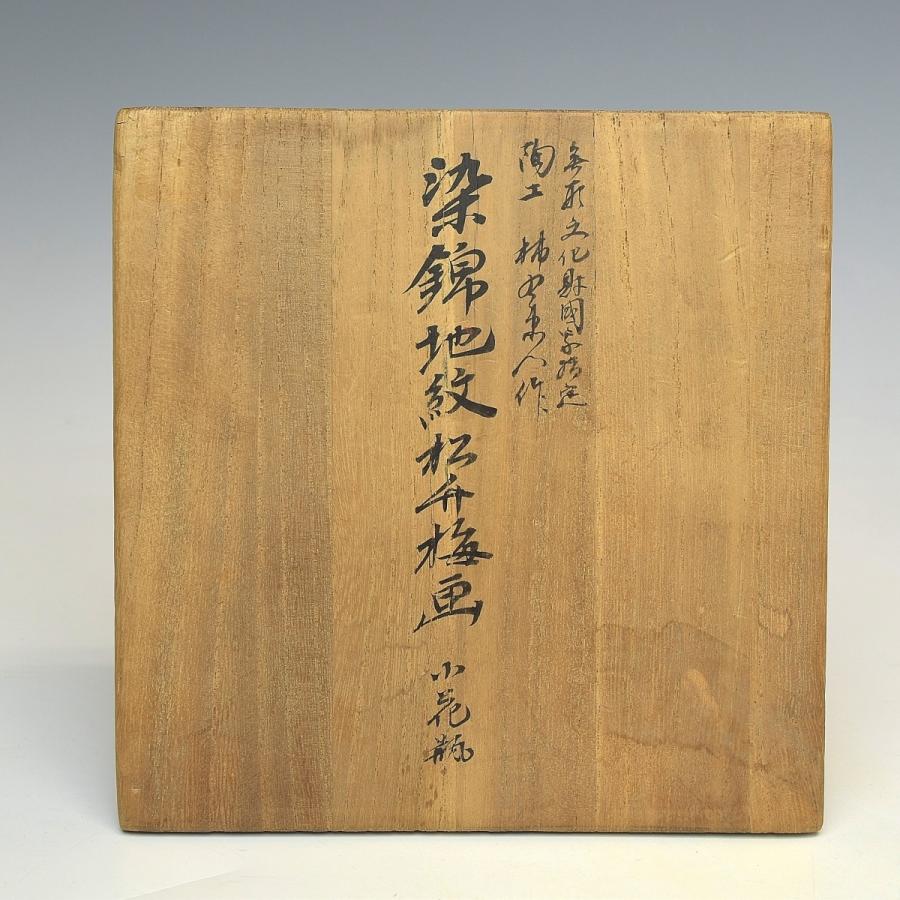 無形文化財國家指定
陶工 柿右衛門作
染錦地紋松竹梅画 小花瓶